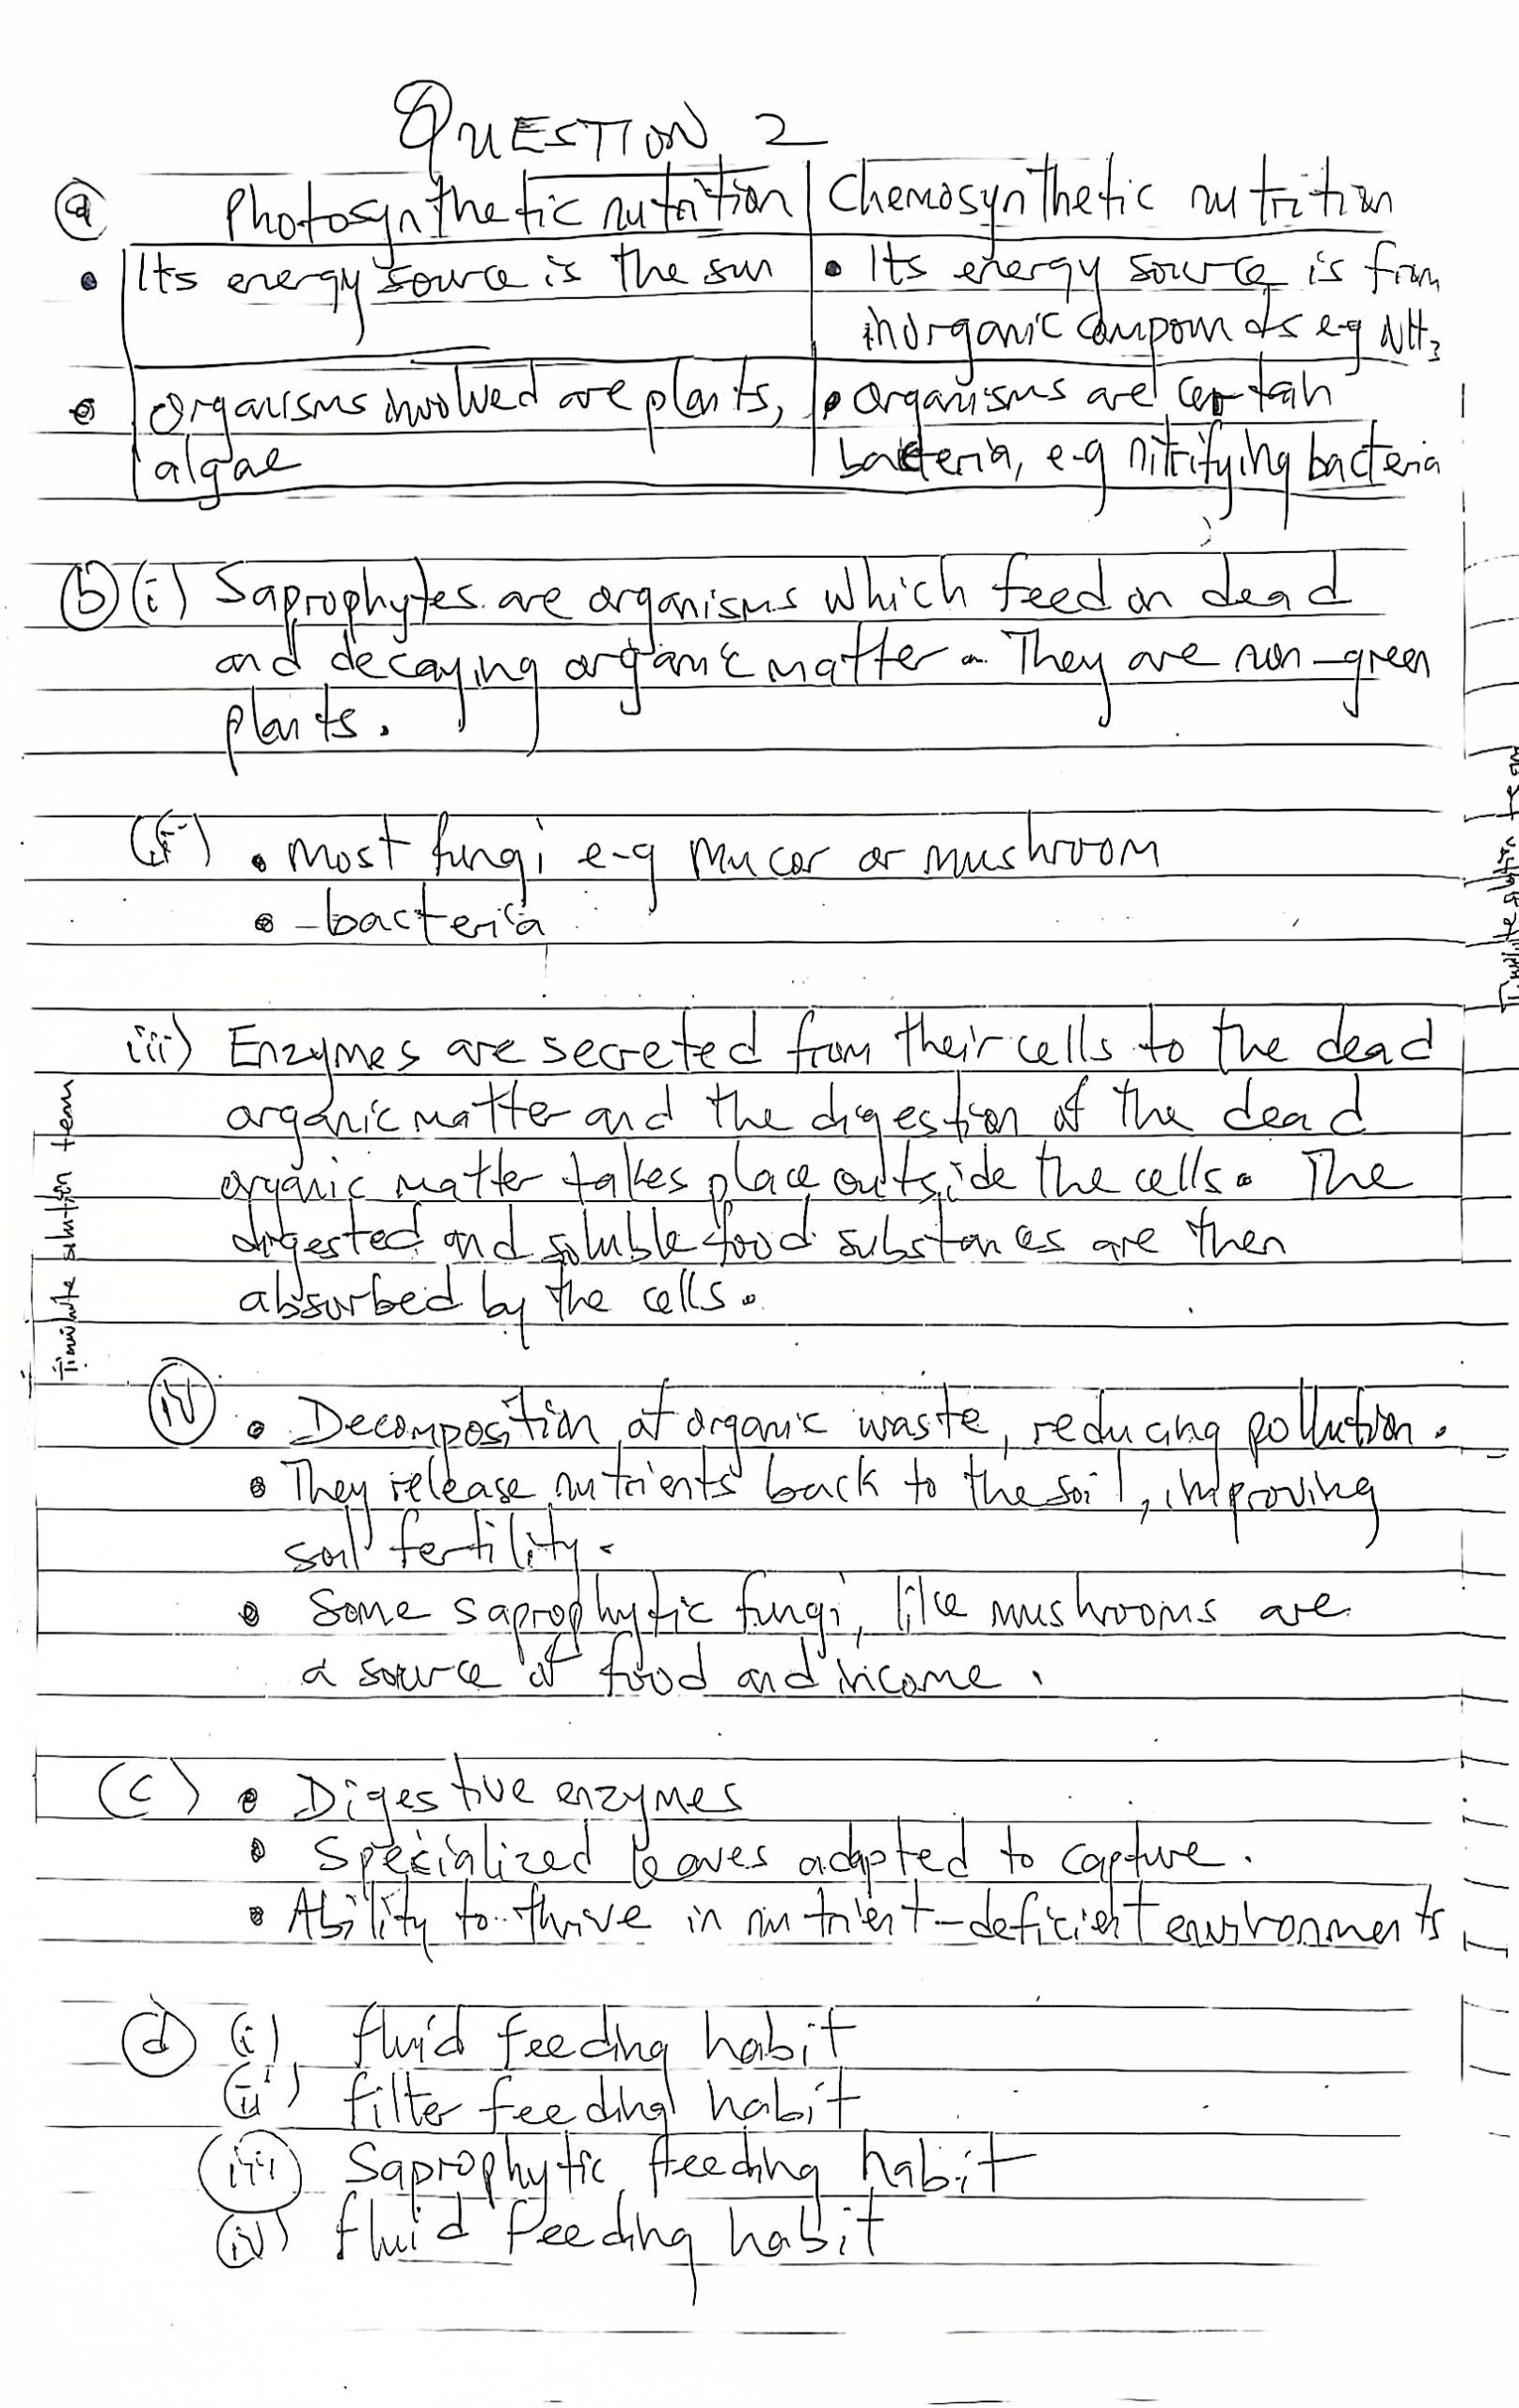 QUESTION 2
(a) Photosynthetic nutrition | Chemosynthetic nutrition
• Its energy source is the sun | • Its energy source is from
inorganic compounds e-g NH3
• Organisms involved are plants, | • Organisms are certain
algae | bacteria, e-g nitrifying bacteria
(b) (i) Saprophytes are organisms which feed on dead
and decaying organic matter. They are non-green
plants.
(ii) • Most fungi e-g Mucor or mushroom
• - bacteria
iii) Enzymes are secreted from their cells to the dead
organic matter and the digestion of the dead
organic matter takes place outside the cells. The
digested and soluble food substances are then
absorbed by the cells.
Timilute solution team
Timilute solution team
(iv) • Decomposition of organic waste, reducing pollution.
• They release nutrients back to the soil, improving
soil fertility.
• Some saprophytic fungi, like mushrooms are
a source of food and income.
(c) • Digestive enzymes
• Specialized leaves adapted to capture.
• Ability to thrive in nutrient-deficient environments
(d) (i) fluid feeding habit
(ii) filter feeding habit
(iii) Saprophytic feeding habit
(iv) fluid feeding habit